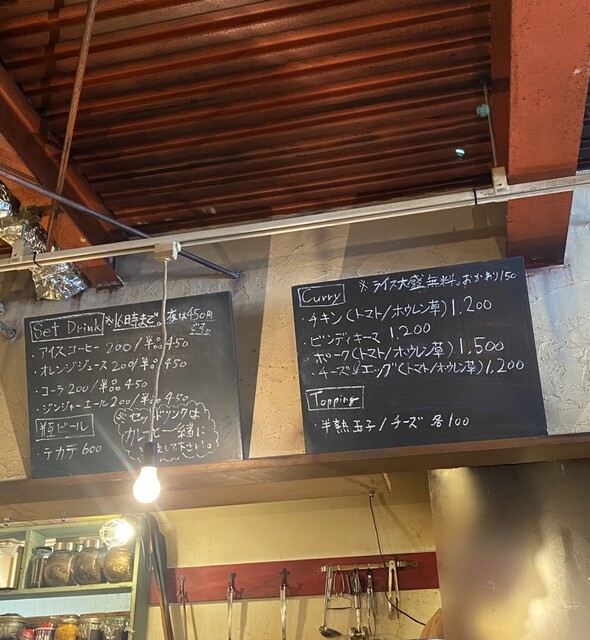 Set Drink ※16時まで。夜は450円です。
・アイスコーヒー 200/単品450
・オレンジジュース 200/単品450
・コーラ 200/単品450
・ジンジャーエール 200/単品450
瓶ビール
・テカテ 600
※セットドリンクは
カレーと一緒に
して下さい。
Curry ※ライス大盛無料。おかわり150
・チキン(トマト/ホウレン草) 1,200
・ビンディキーマ 1,200
・ポーク(トマト/ホウレン草) 1,500
・チーズ&エッグ(トマト/ホウレン草) 1,200
Topping
・半熟玉子/チーズ 各100